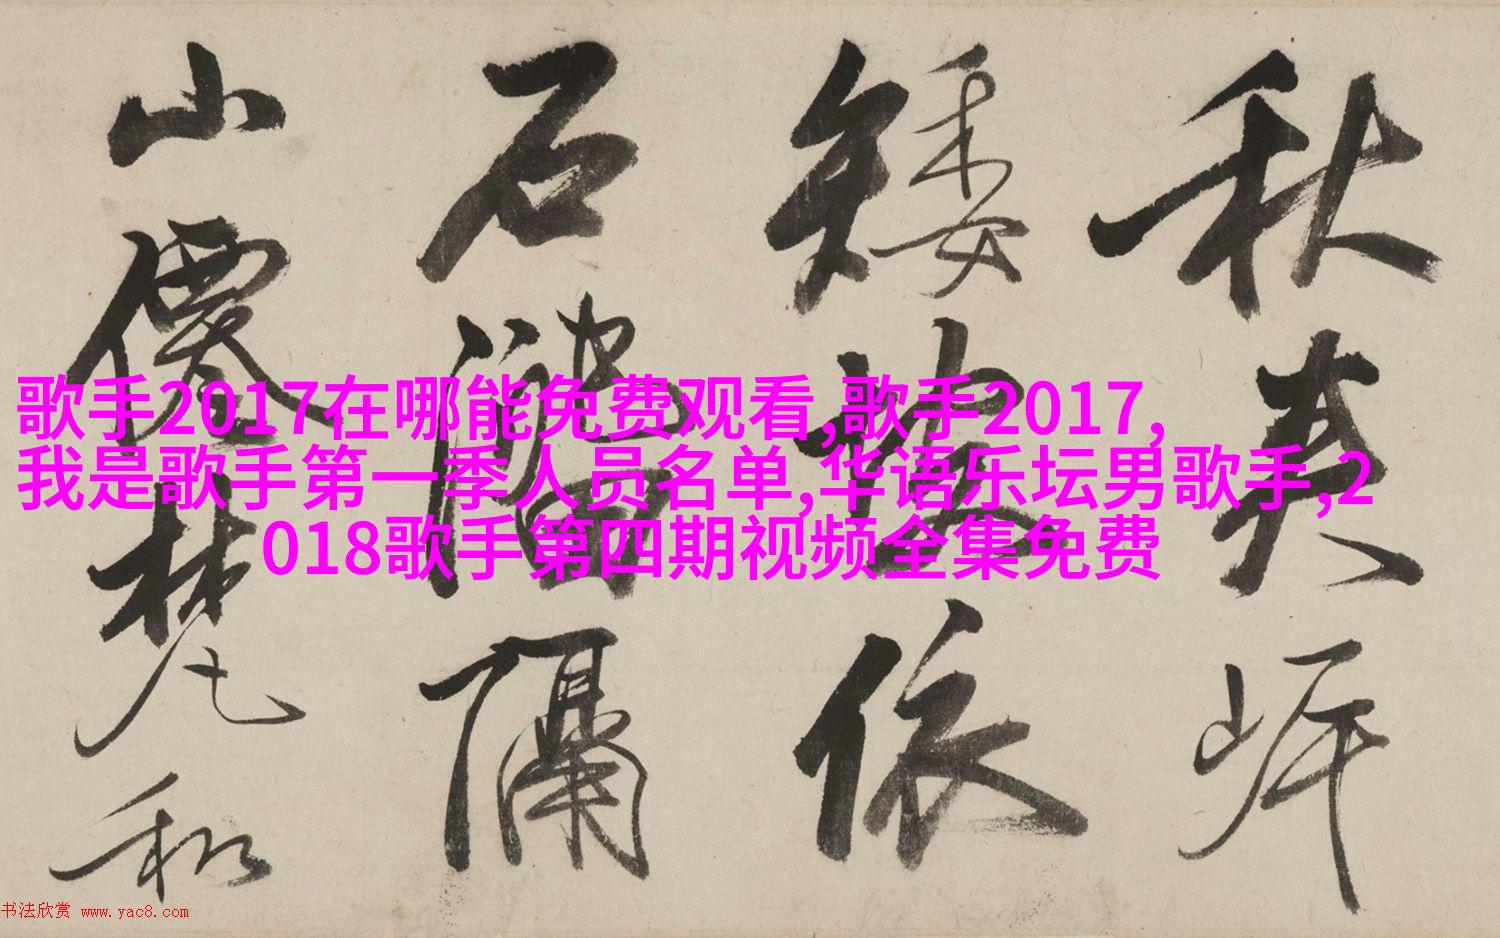 歌手2017在哪能免费观看,歌手2017,
我是歌手第一季人员名单,华语乐坛男歌手,2
018歌手第四期视频全集免费
秋英
矮依
石隔
山僊梵和
书法欣赏 www.yac8.com